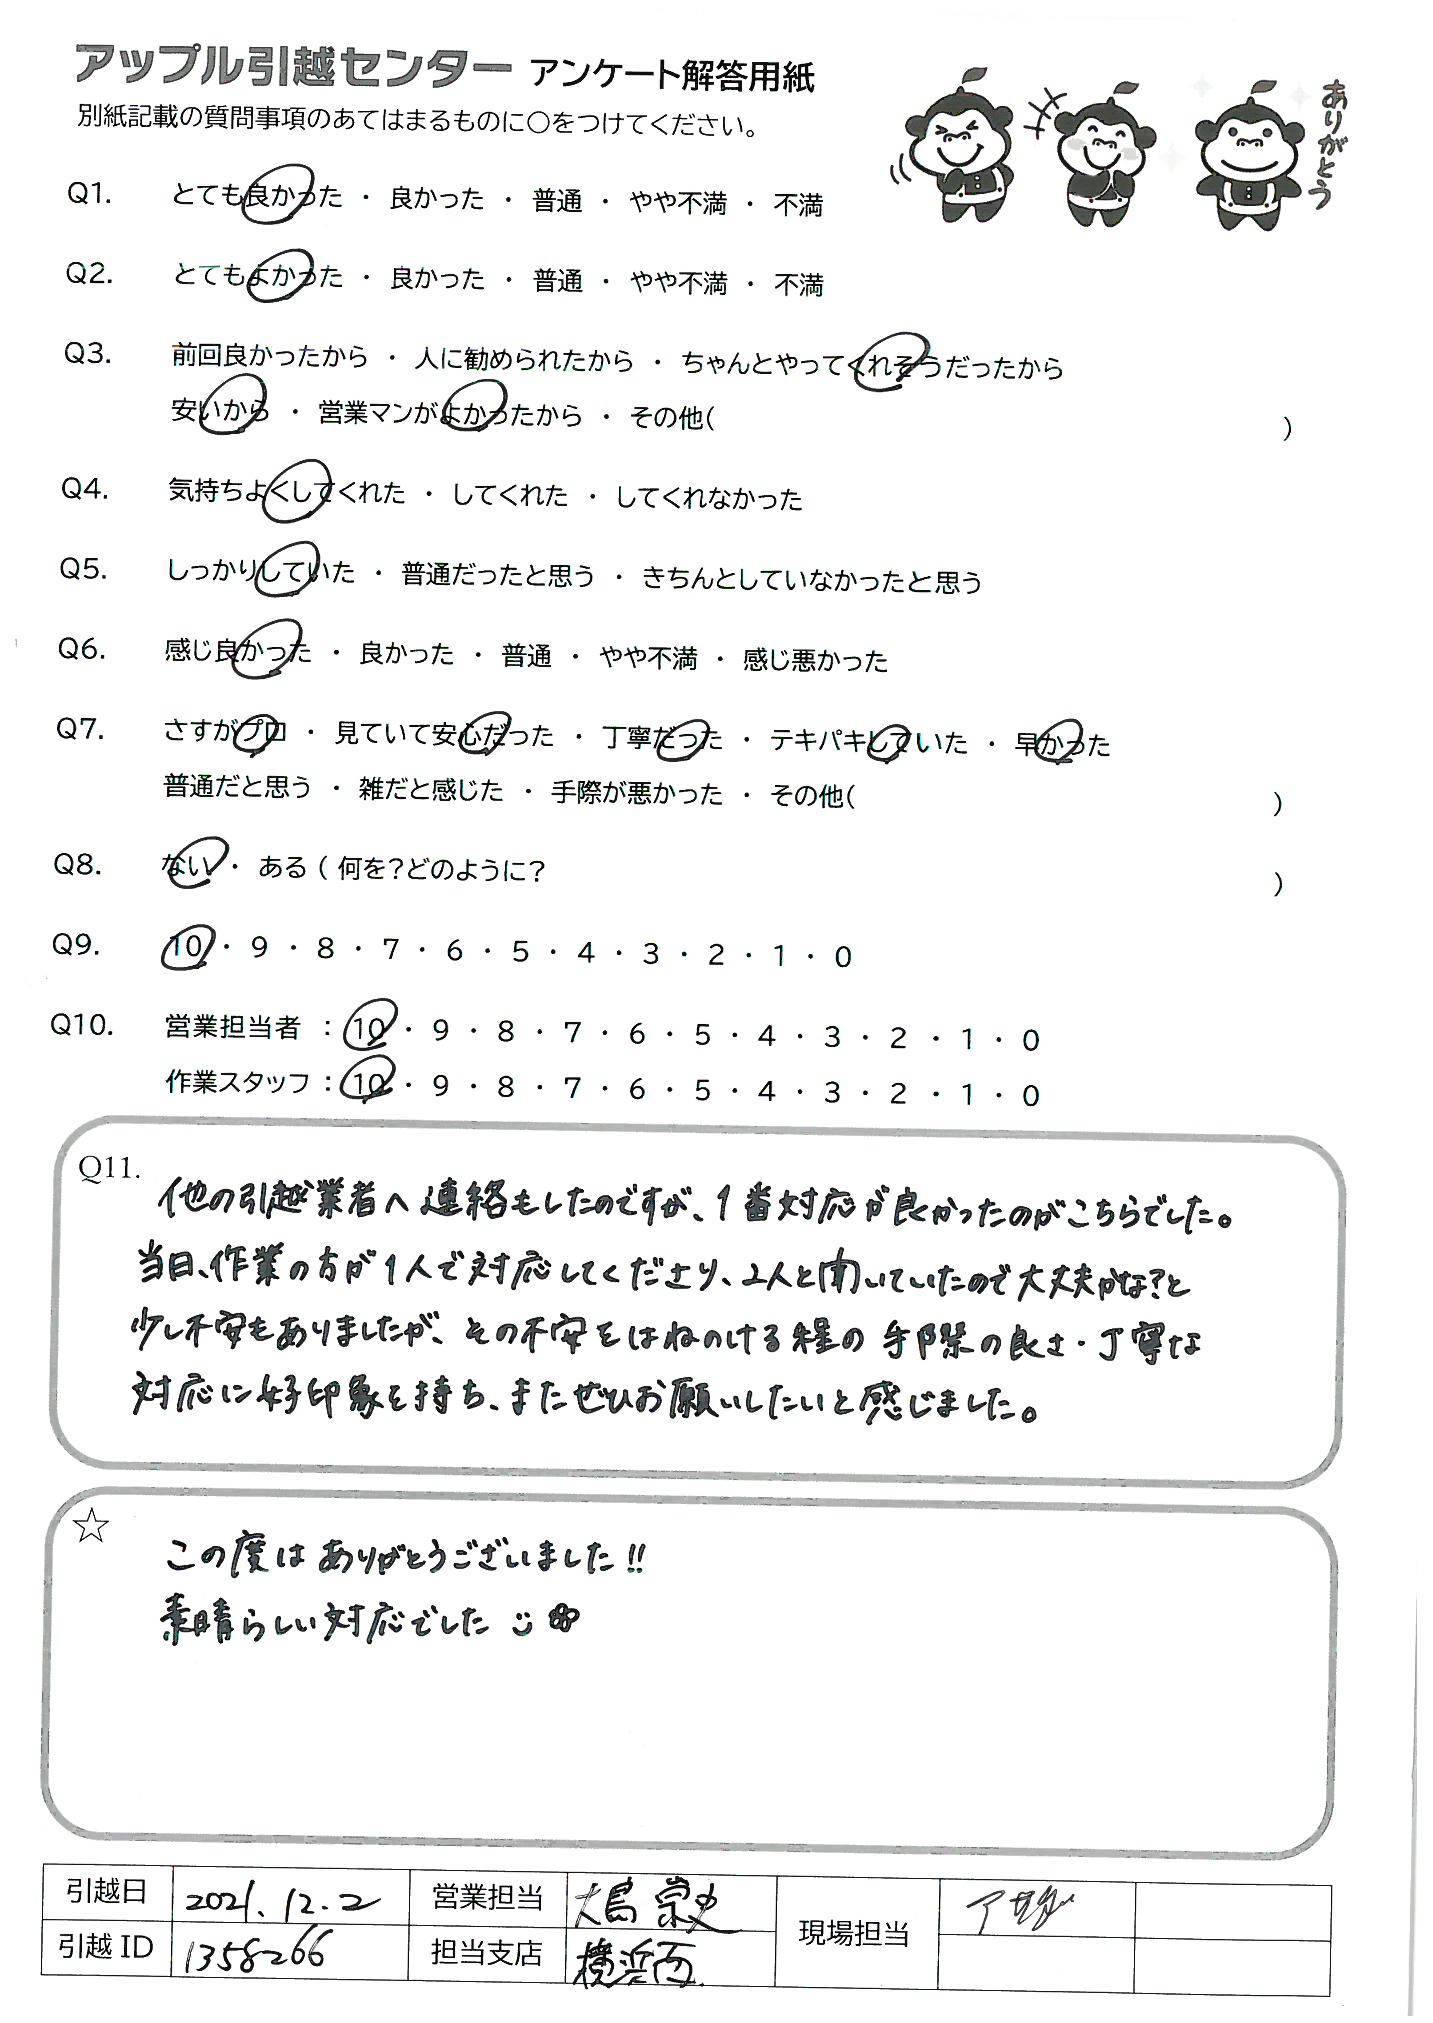 アップル引越センター アンケート解答用紙
別紙記載の質問事項のあてはまるものに○をつけてください。
ありがとう
Q1. とても良かった ・ 良かった ・ 普通 ・ やや不満 ・ 不満
Q2. とてもよかった ・ 良かった ・ 普通 ・ やや不満 ・ 不満
Q3. 前回良かったから ・ 人に勧められたから ・ ちゃんとやってくれそうだったから
安いから ・ 営業マンがよかったから ・ その他( )
Q4. 気持ちよくしてくれた ・ してくれた ・ してくれなかった
Q5. しっかりしていた ・ 普通だったと思う ・ きちんとしていなかったと思う
Q6. 感じ良かった ・ 良かった ・ 普通 ・ やや不満 ・ 感じ悪かった
Q7. さすがプロ ・ 見ていて安心だった ・ 丁寧だった ・ テキパキしていた ・ 早かった
普通だと思う ・ 雑だと感じた ・ 手際が悪かった ・ その他( )
Q8. ない ・ ある ( 何を?どのように? )
Q9. 10 ・ 9 ・ 8 ・ 7 ・ 6 ・ 5 ・ 4 ・ 3 ・ 2 ・ 1 ・ 0
Q10. 営業担当者 : 10 ・ 9 ・ 8 ・ 7 ・ 6 ・ 5 ・ 4 ・ 3 ・ 2 ・ 1 ・ 0
作業スタッフ : 10 ・ 9 ・ 8 ・ 7 ・ 6 ・ 5 ・ 4 ・ 3 ・ 2 ・ 1 ・ 0
Q11.
他の引越業者へ連絡もしたのですが、1番対応が良かったのがこちらでした。
当日、作業の方が1人で対応してくださり、2人と聞いていたので大丈夫かな?と
少し不安もありましたが、その不安をはねのける程の手際の良さ・丁寧な
対応に好印象を持ち、またぜひお願いしたいと感じました。
☆
この度はありがとうございました!!
素晴らしい対応でした
引越日 2021.12.2 営業担当 大島 崇史 現場担当
引越 ID 1358266 担当支店 横浜西